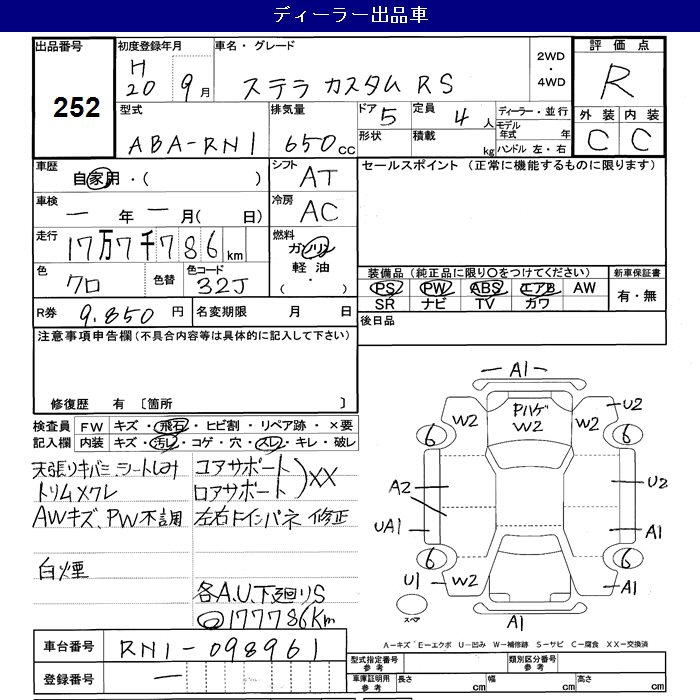 ディーラー出品車
出品番号
252
初度登録年月
H
20 9 月
車名・グレード
ステラ カスタム RS
2WD
・
4WD
評価点
R
外装 内装
C C
型式
ABA-RN1
排気量
650 cc
ドア 5
定員 4 人
形状
積載 kg
ディーラー・並行
モデル
年式 年
ハンドル 左・右
車歴
自家用・( )
シフト
AT
セールスポイント (正常に機能するものに限ります)
車検
ー 年 ー 月( 日)
冷房
AC
走行
17万7千786 km
燃料
ガソリン
軽油
( ・ )
色
クロ
色替
色コード
32J
装備品(純正品に限り○をつけてください)
新車保証書
PS PW ABS エアB AW
SR ナビ TV カワ
有・無
R券 9.850 円
名変期限 月 日
後日品
注意事項申告欄(不具合内容等は具体的に記入して下さい)
修復歴 有 〔箇所 〕
検査員
記入欄
FW キズ・飛石・ヒビ割・リペア跡・×要
内装 キズ・汚レ・コゲ・穴・スレ・キレ・破レ
天張リキバミ シートしみ
トリムメクレ
AWキズ、PW不調
白煙
コアサポート
ロアサポート
)XX
左右ドインパネ 修正
各A.U.下廻りS
177786Km
A1
PハゲW2
W2
W2
U2
6
6
A2
U2
UA1
A1
6
6
U1
W2
W2
A1
A1
スペア
A-キズ E-エクボ U-凹み W-補修跡 S-サビ C-腐食 XX-交換済
車台番号
RN1-098961
登録番号
ー
型式指定番号
参考
類別区分番号
参考
車庫証明用
参考
長さ cm
幅 cm
高さ cm